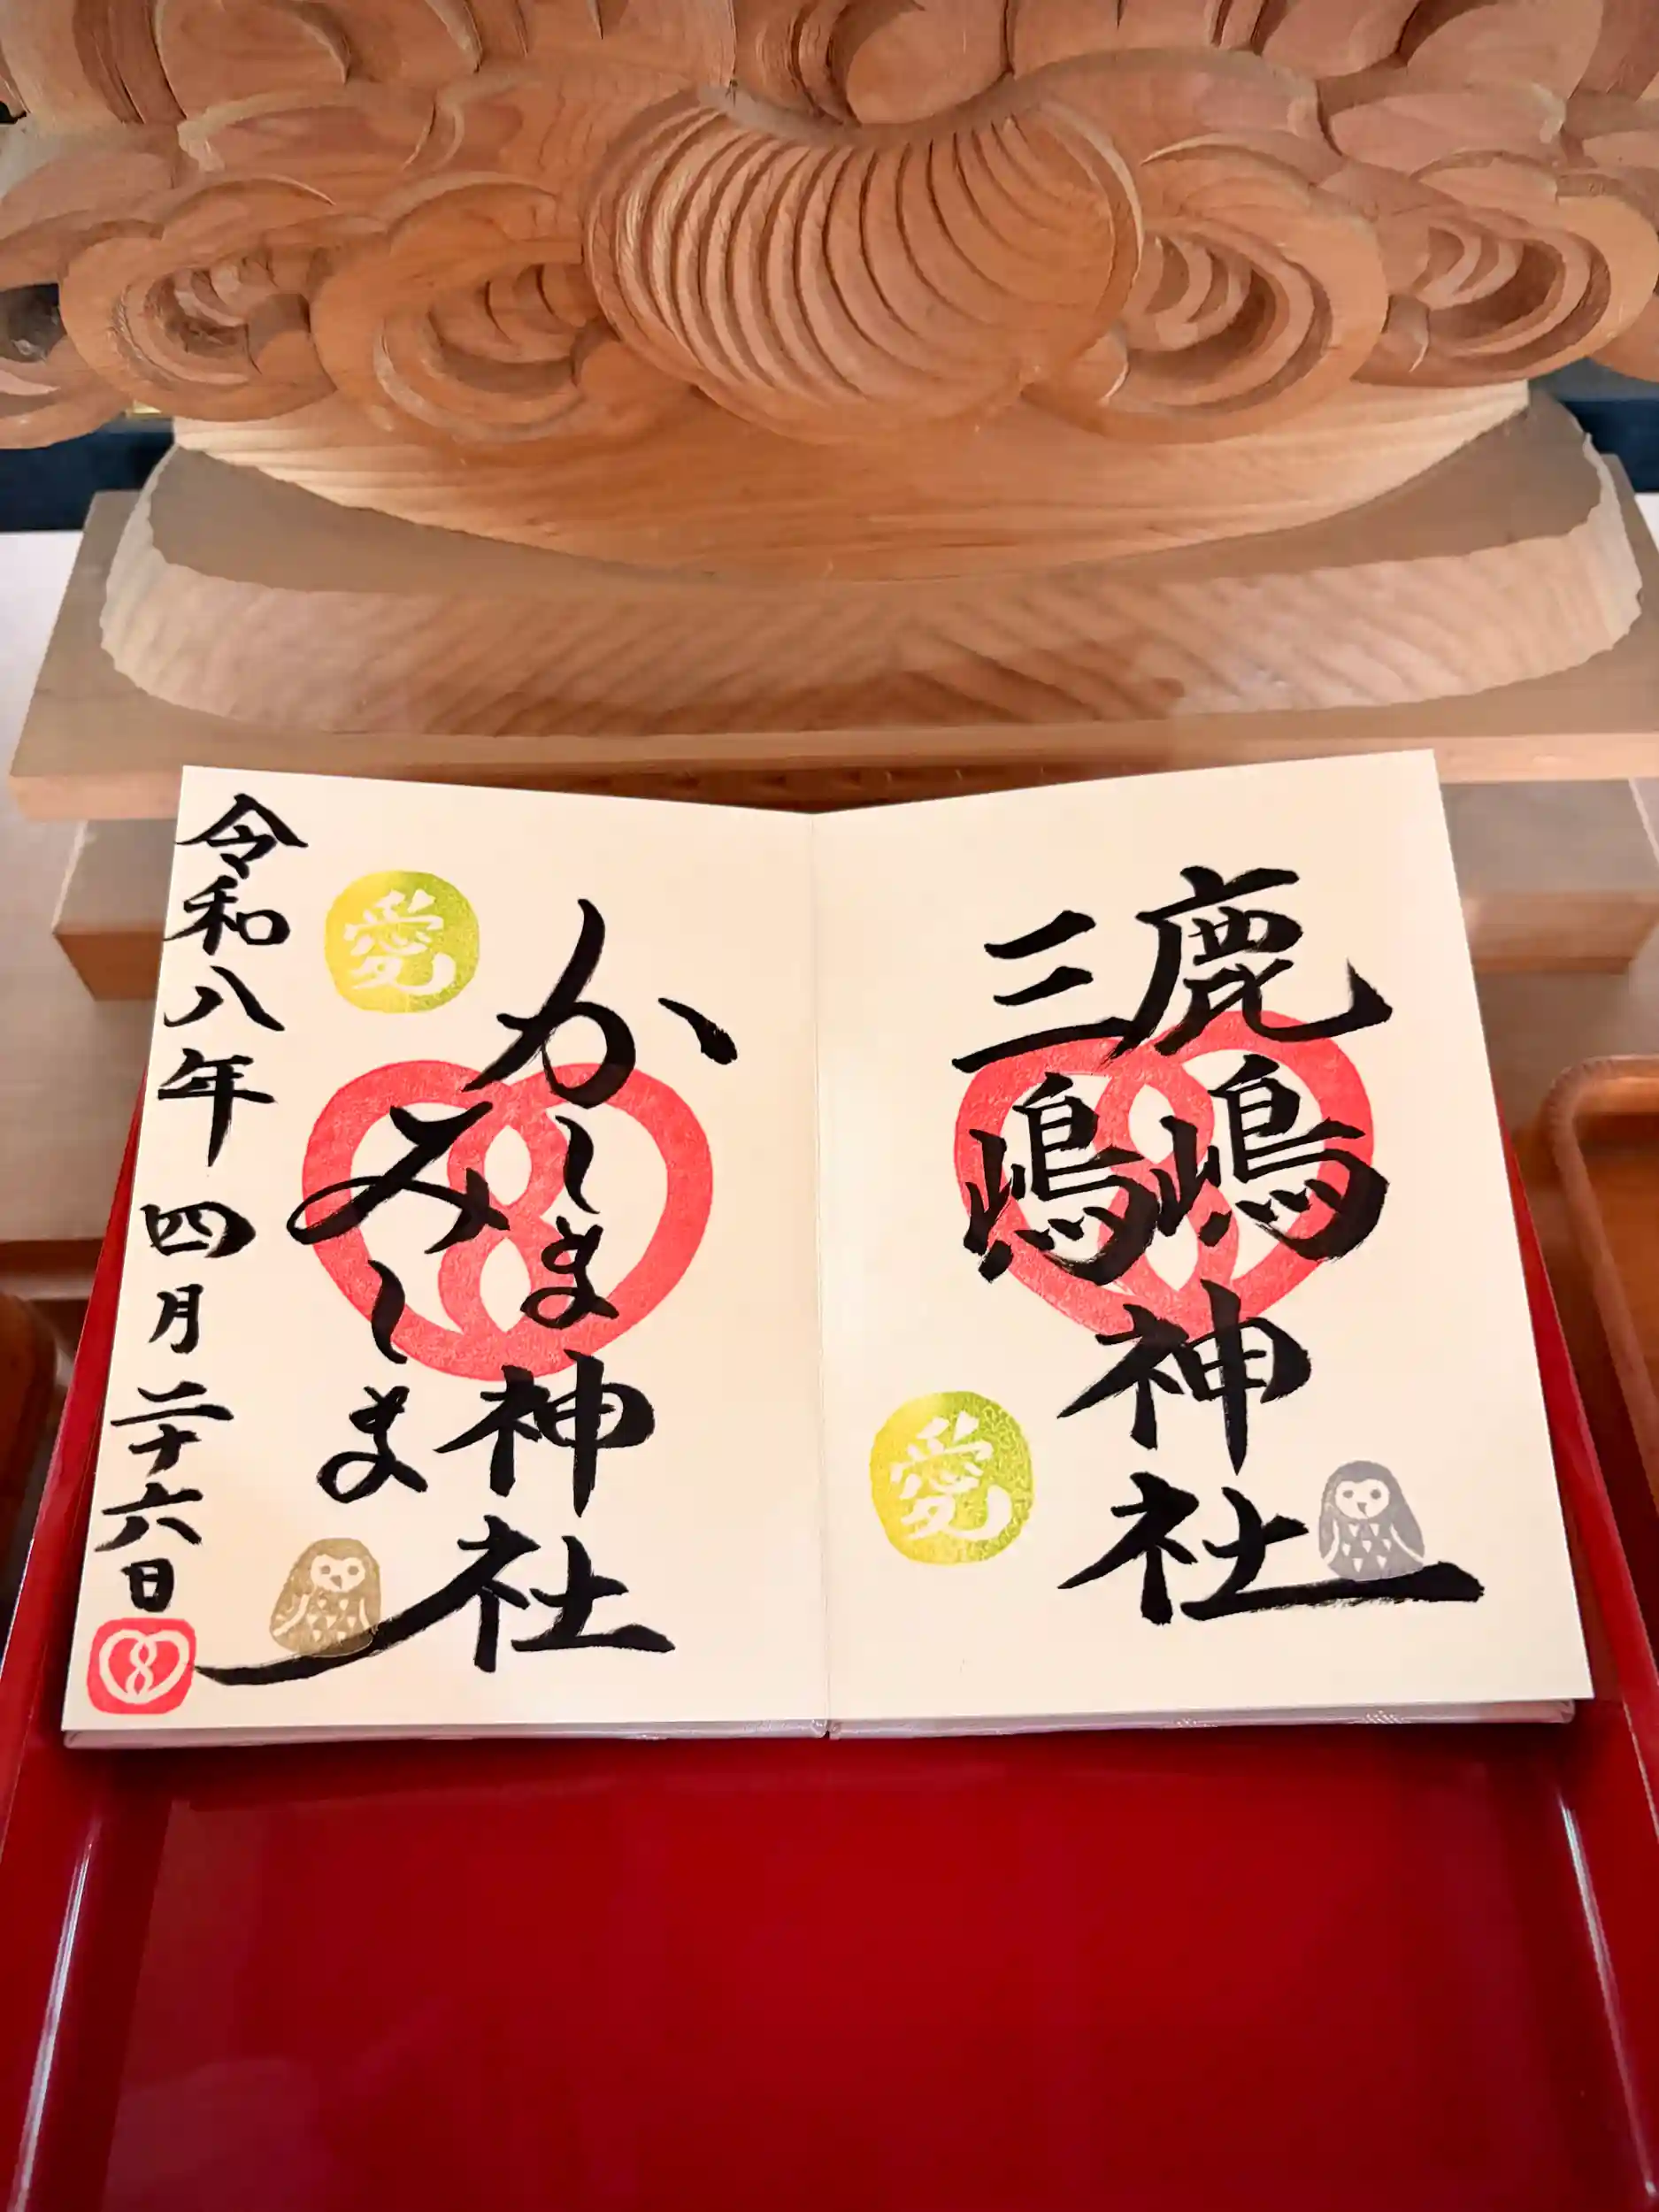 鹿嶋
三嶋
神社
愛
かしま
みしま
神社
愛
令和八年四月二十六日